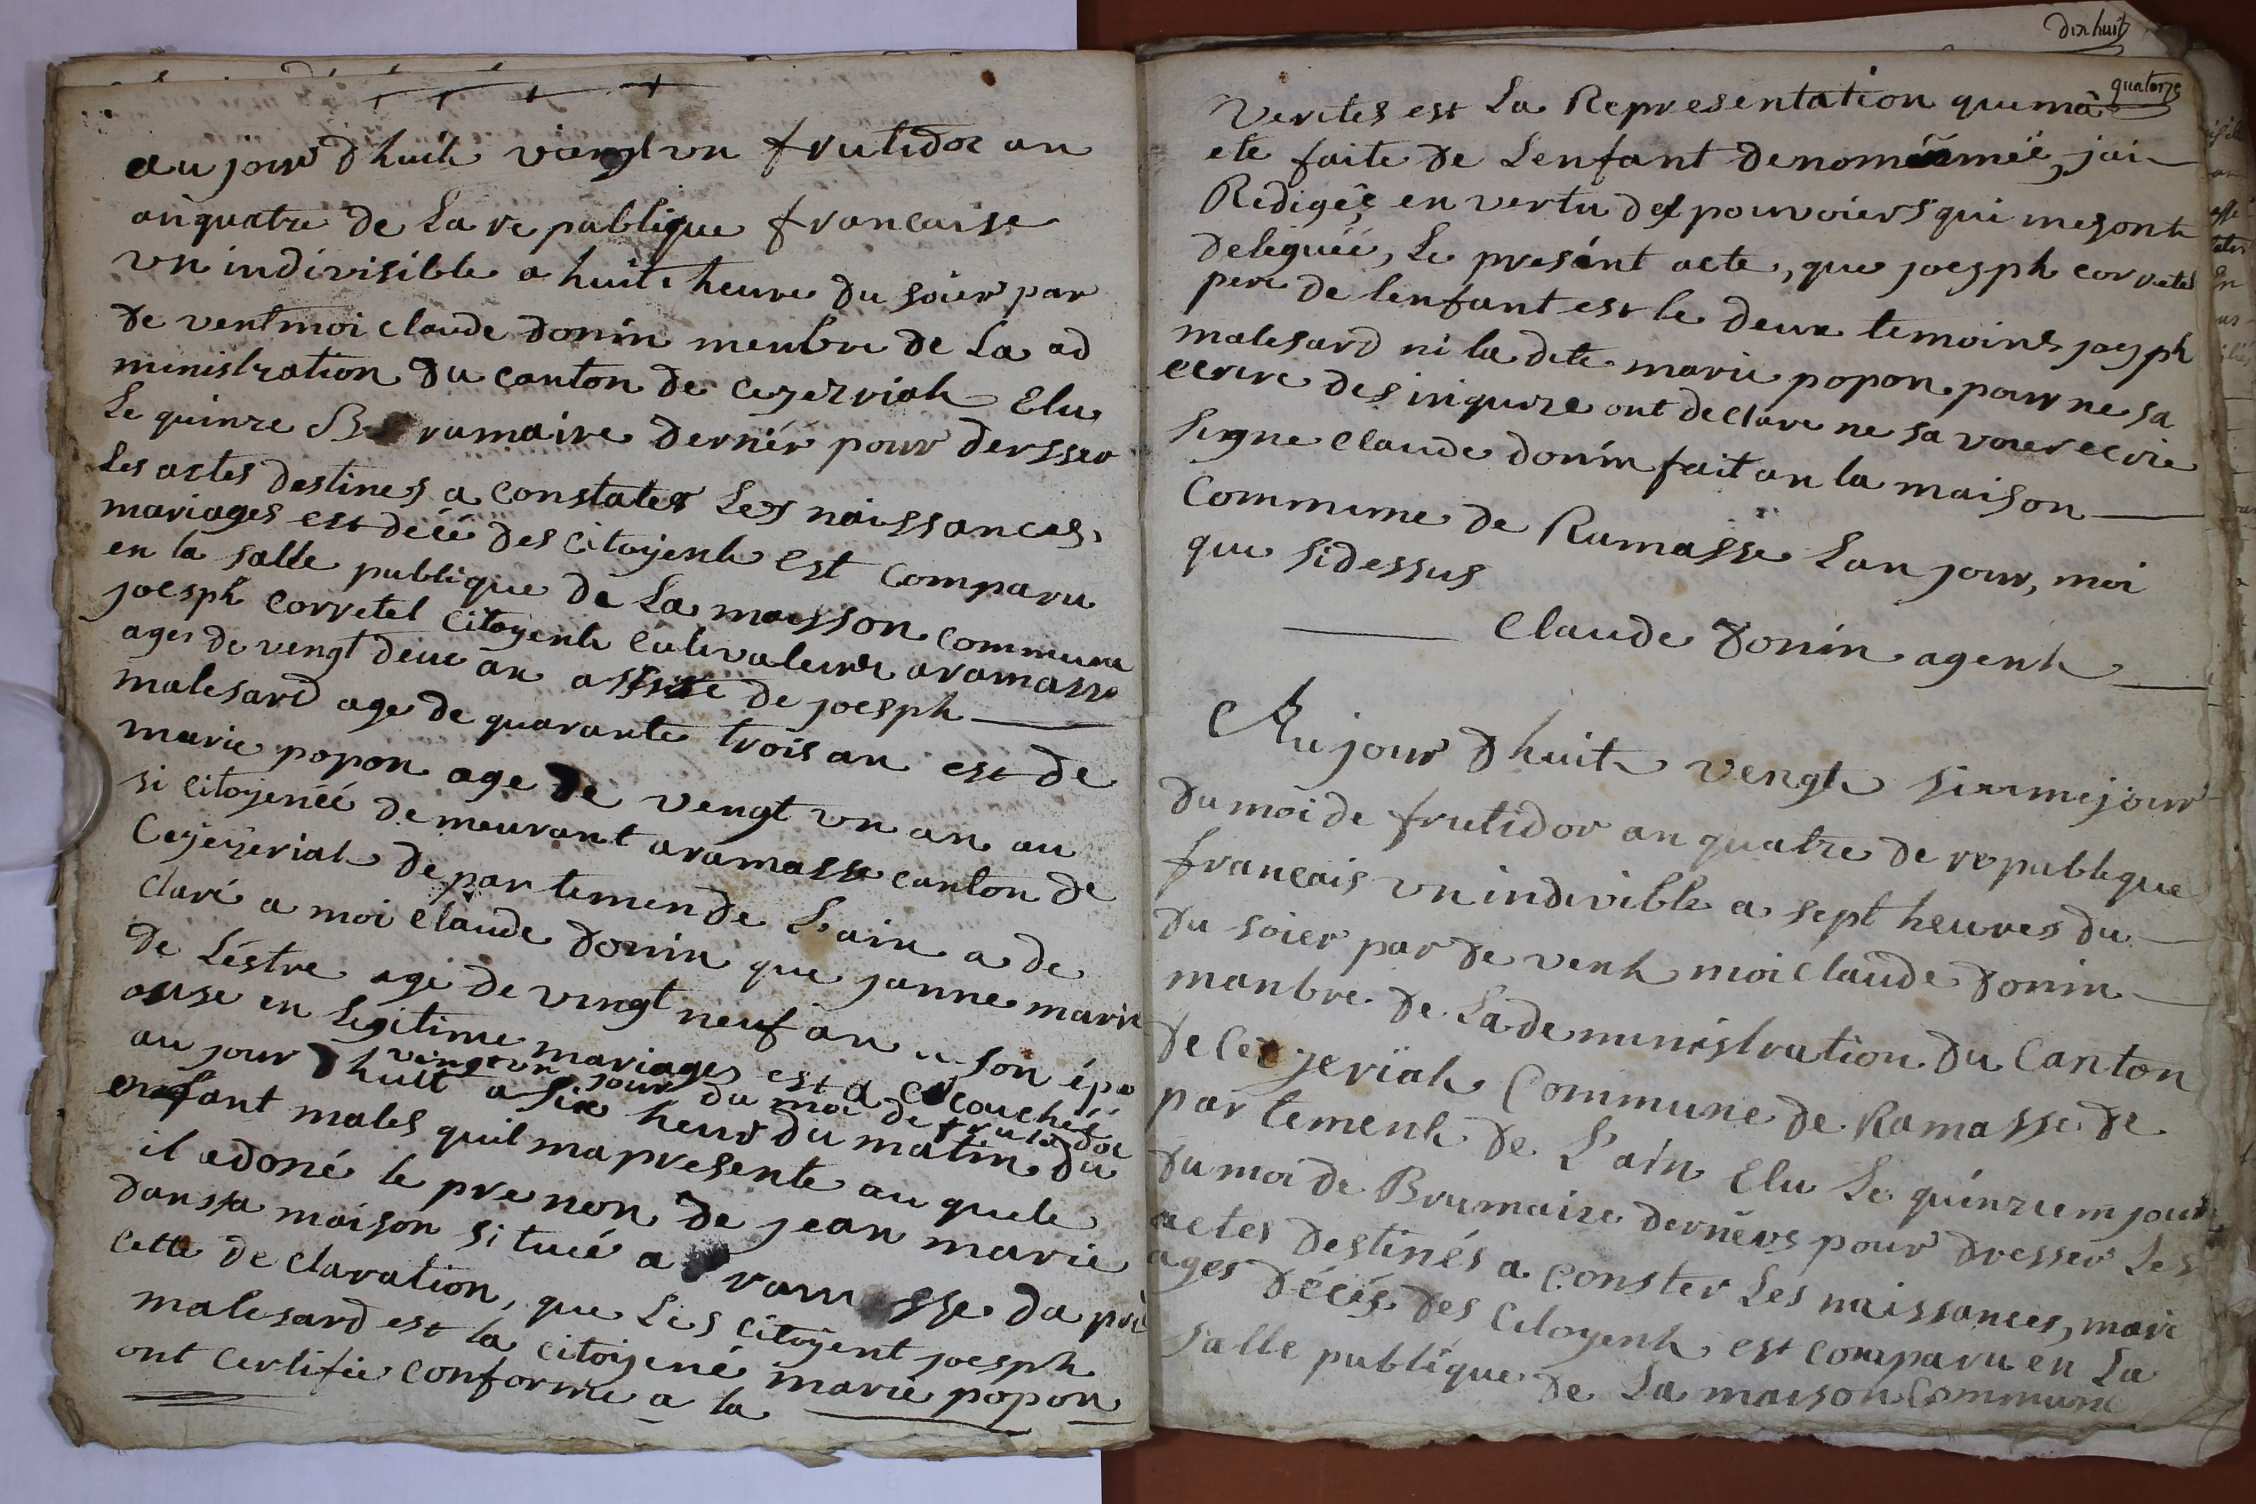 aujourdhuit viengt un frutidor an
anquatre de La republique francaise
un indivisible a huit heure du soier par
de vent moi claude donin menbre de La ad
ministration du canton de Cezerriah Elu
Le quinze Brumaire dernier pour dersser
Les actes destines a constater Les naissances,
mariages est décé des citoyent est comparu
en la salle publique de La maisson commune
joesph corretel citoyent cultivateur aramasse
ages de vengt deuc an assite de joesph
malesard age de quarante trois an est de
marie popon age de vengt un an au
si citoyenéé demeurant aramasse canton de
Ceyzeriah departemen de L'ain a de
claré a moi claude donin que janne marie
de Léstre agé de vingt neuf an son épo
ouse en legitime mariages est acouchéé
vingt un jour du moi de frutidor
au jour dhuit a six heur du matin du
enfant males quil mapresente au quele
il adoné le prenon de jean marie
dans sa maison situcé a ramasse da pré
cette declaration, que Les citoyent joesph
malesard est la citoyené marie popon
ont certifie conforme a la
dix huit
quatorze
verites est La Representation quima
ete faite de Lenfant denomémeé, jai
Redigéé en vertu des pouvoiers qui mesont
deleguéé, Le present acte, que joesph corretel
pere de lenfant est le deux temoins joesph
malesard ni la dite marie popon pour ne sa
ecrire des inquize ont declare ne sa voier ecrie
signe claude donin fait an la maison
Commune de Rumasse Lan jour, moi
que sidessus
Claude donin agent
Aujour dhuit vengt sixmejour
du moi de frutidor an quatre de republique
français un indivible a sept heures du
du soier par de vent moi claude donin
manbre de Ladeministration du Canton
de Ceyzeriah Commune de Ramasse de
partement de L'ain Elu Le quinziem jour
du moi de Brumaire derniers pour dresser Les
actes destinés a conster Les naissances, mari
ages décés des Citoyent est comparu en La
salle publique de La maison Commune